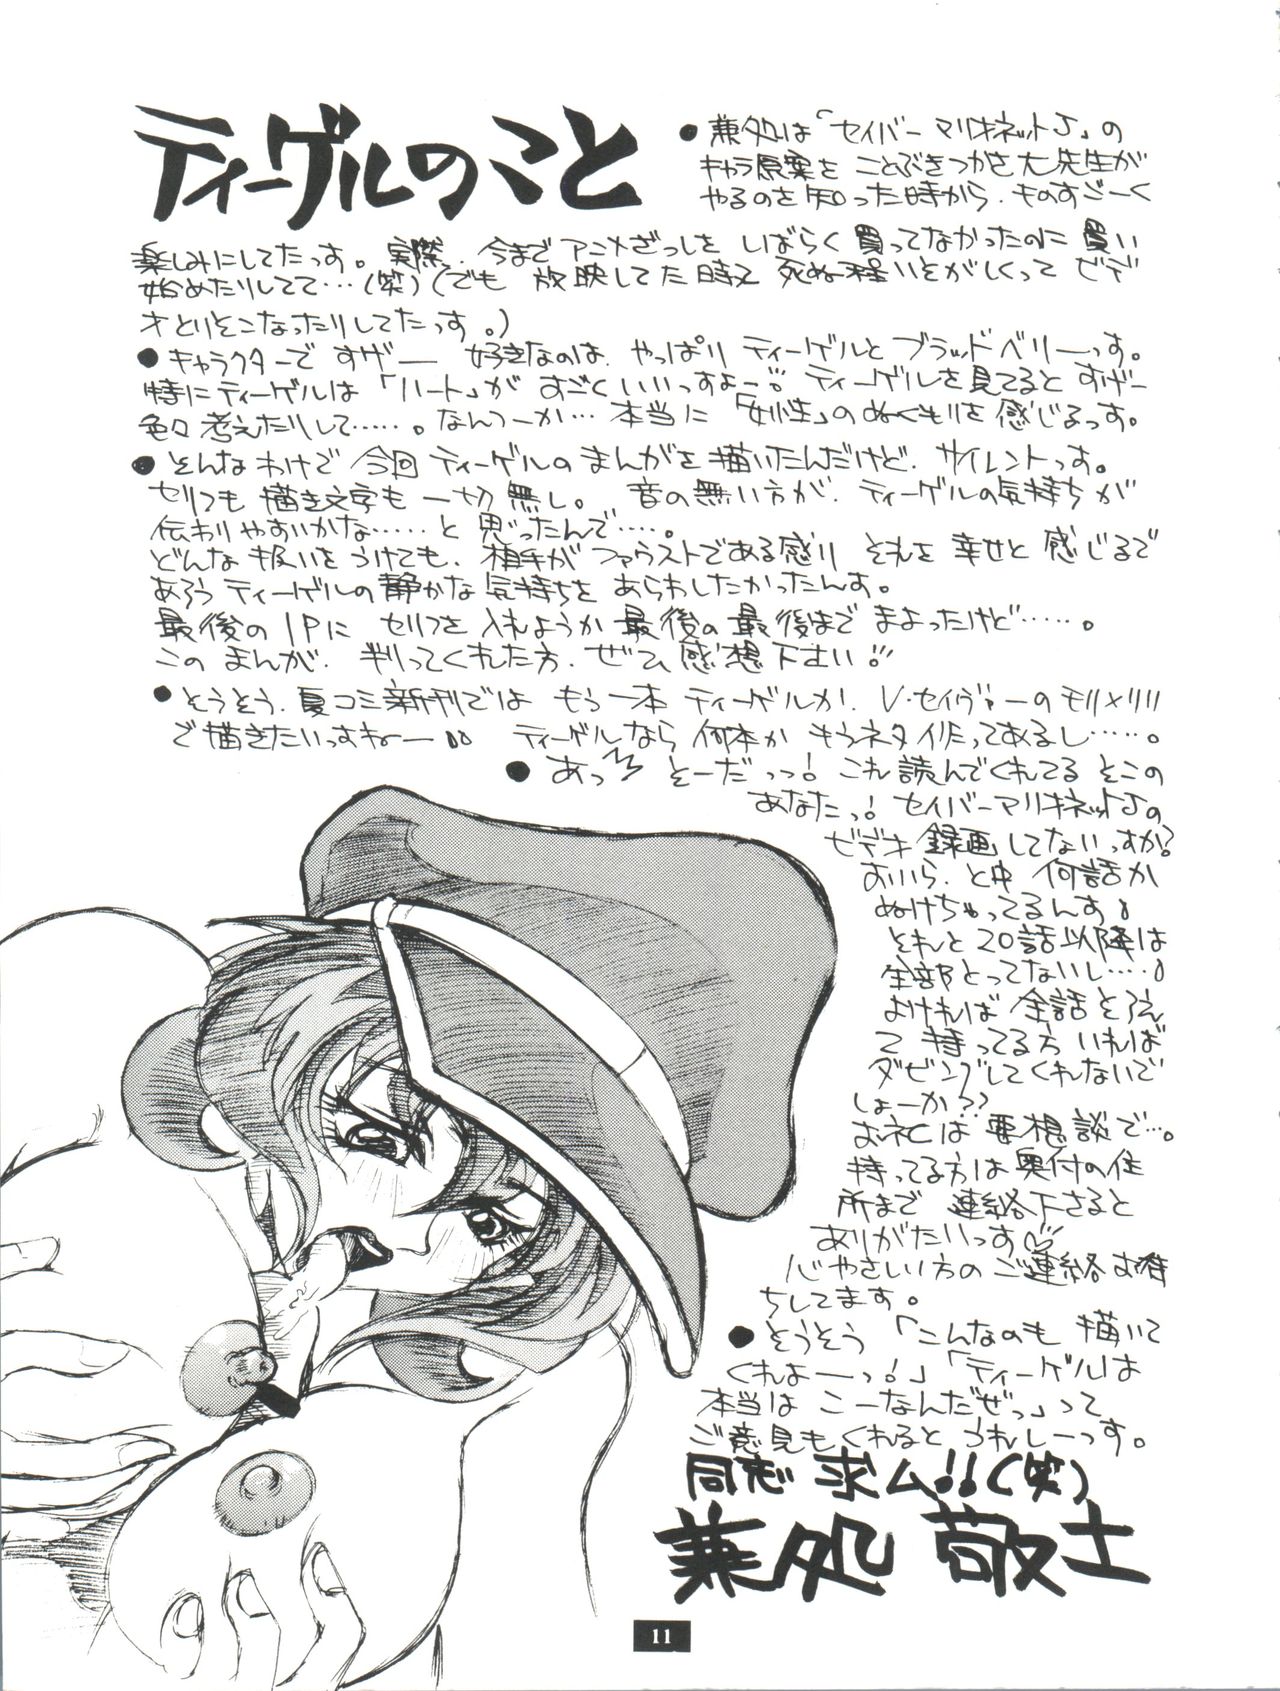 ティーゲルのこと
●兼処は「セイバーマリオネットJ」の
キャラ原案を ことぶきつかさ大先生が
やるのを知った時から、ものすごーく
楽しみにしてたっす。実際、今までアニメざっしを しばらく買ってなかったのに買い
始めたりしてて…(笑)(でも 放映してた時って 死ぬ程いそがしくって ビデ
オとりそこなったりしてたっす。)
●キャラクターで すげー 好きなのは、やっぱり ティーゲルと ブラッドベリーっす。
特にティーゲルは「ハート」が すごくいいっすよー!! ティーゲルを見てると すげー
色々考えたりして……。なんつーか… 本当に「女性」のぬくもりを感じるっす。
●そんなわけで 今回 ティーゲルのまんがを描いたんだけど、サイレントっす。
セリフも 描き文字も 一切無し。 音の無い方が、ティーゲルの気持ちが
伝わりやすいかな……と 思ったんで……。
どんな扱いをうけても、相手がファウストである限り それを 幸せと 感じるで
あろう ティーゲルの静かな気持ちを あらわしたかったんす。
最後の1Pに セリフを入れようか 最後の最後まで まよったけど……。
このまんが、判ってくれた方、ぜひ感想下さい!!
●そうそう、夏コミ新刊では もう一本ティーゲルか、V・セイヴァーのモリ×リリ
で描きたいっすねー!! ティーゲルなら 何本か もうネタ作ってあるし……。
●あっ そーだっっ! これ読んでくれてる そこの
あなたっ! セイバーマリオネットJの
ビデオ録画してないっすか?
おいら、と中 何話か
ぬけちゃってるんす!
それと20話以降は
全部とってないし…!
おければ 全話とろえ
て持ってる方いれば
ダビングしてくれないで
しょーか??
おネdは要相談で…。
持ってる方は奥付の住
所まで 連絡下さると
ありがたいっす♡
心やさしい方のご連絡お待
ちしてます。
●そうそう「こんなのも 描いて
くれよーっ!」「ティーゲルは
本当は こーなんだぜっ」って
ご意見もくれると うれしーっす。
同志 求ム!!(笑)
兼処 敬士
11